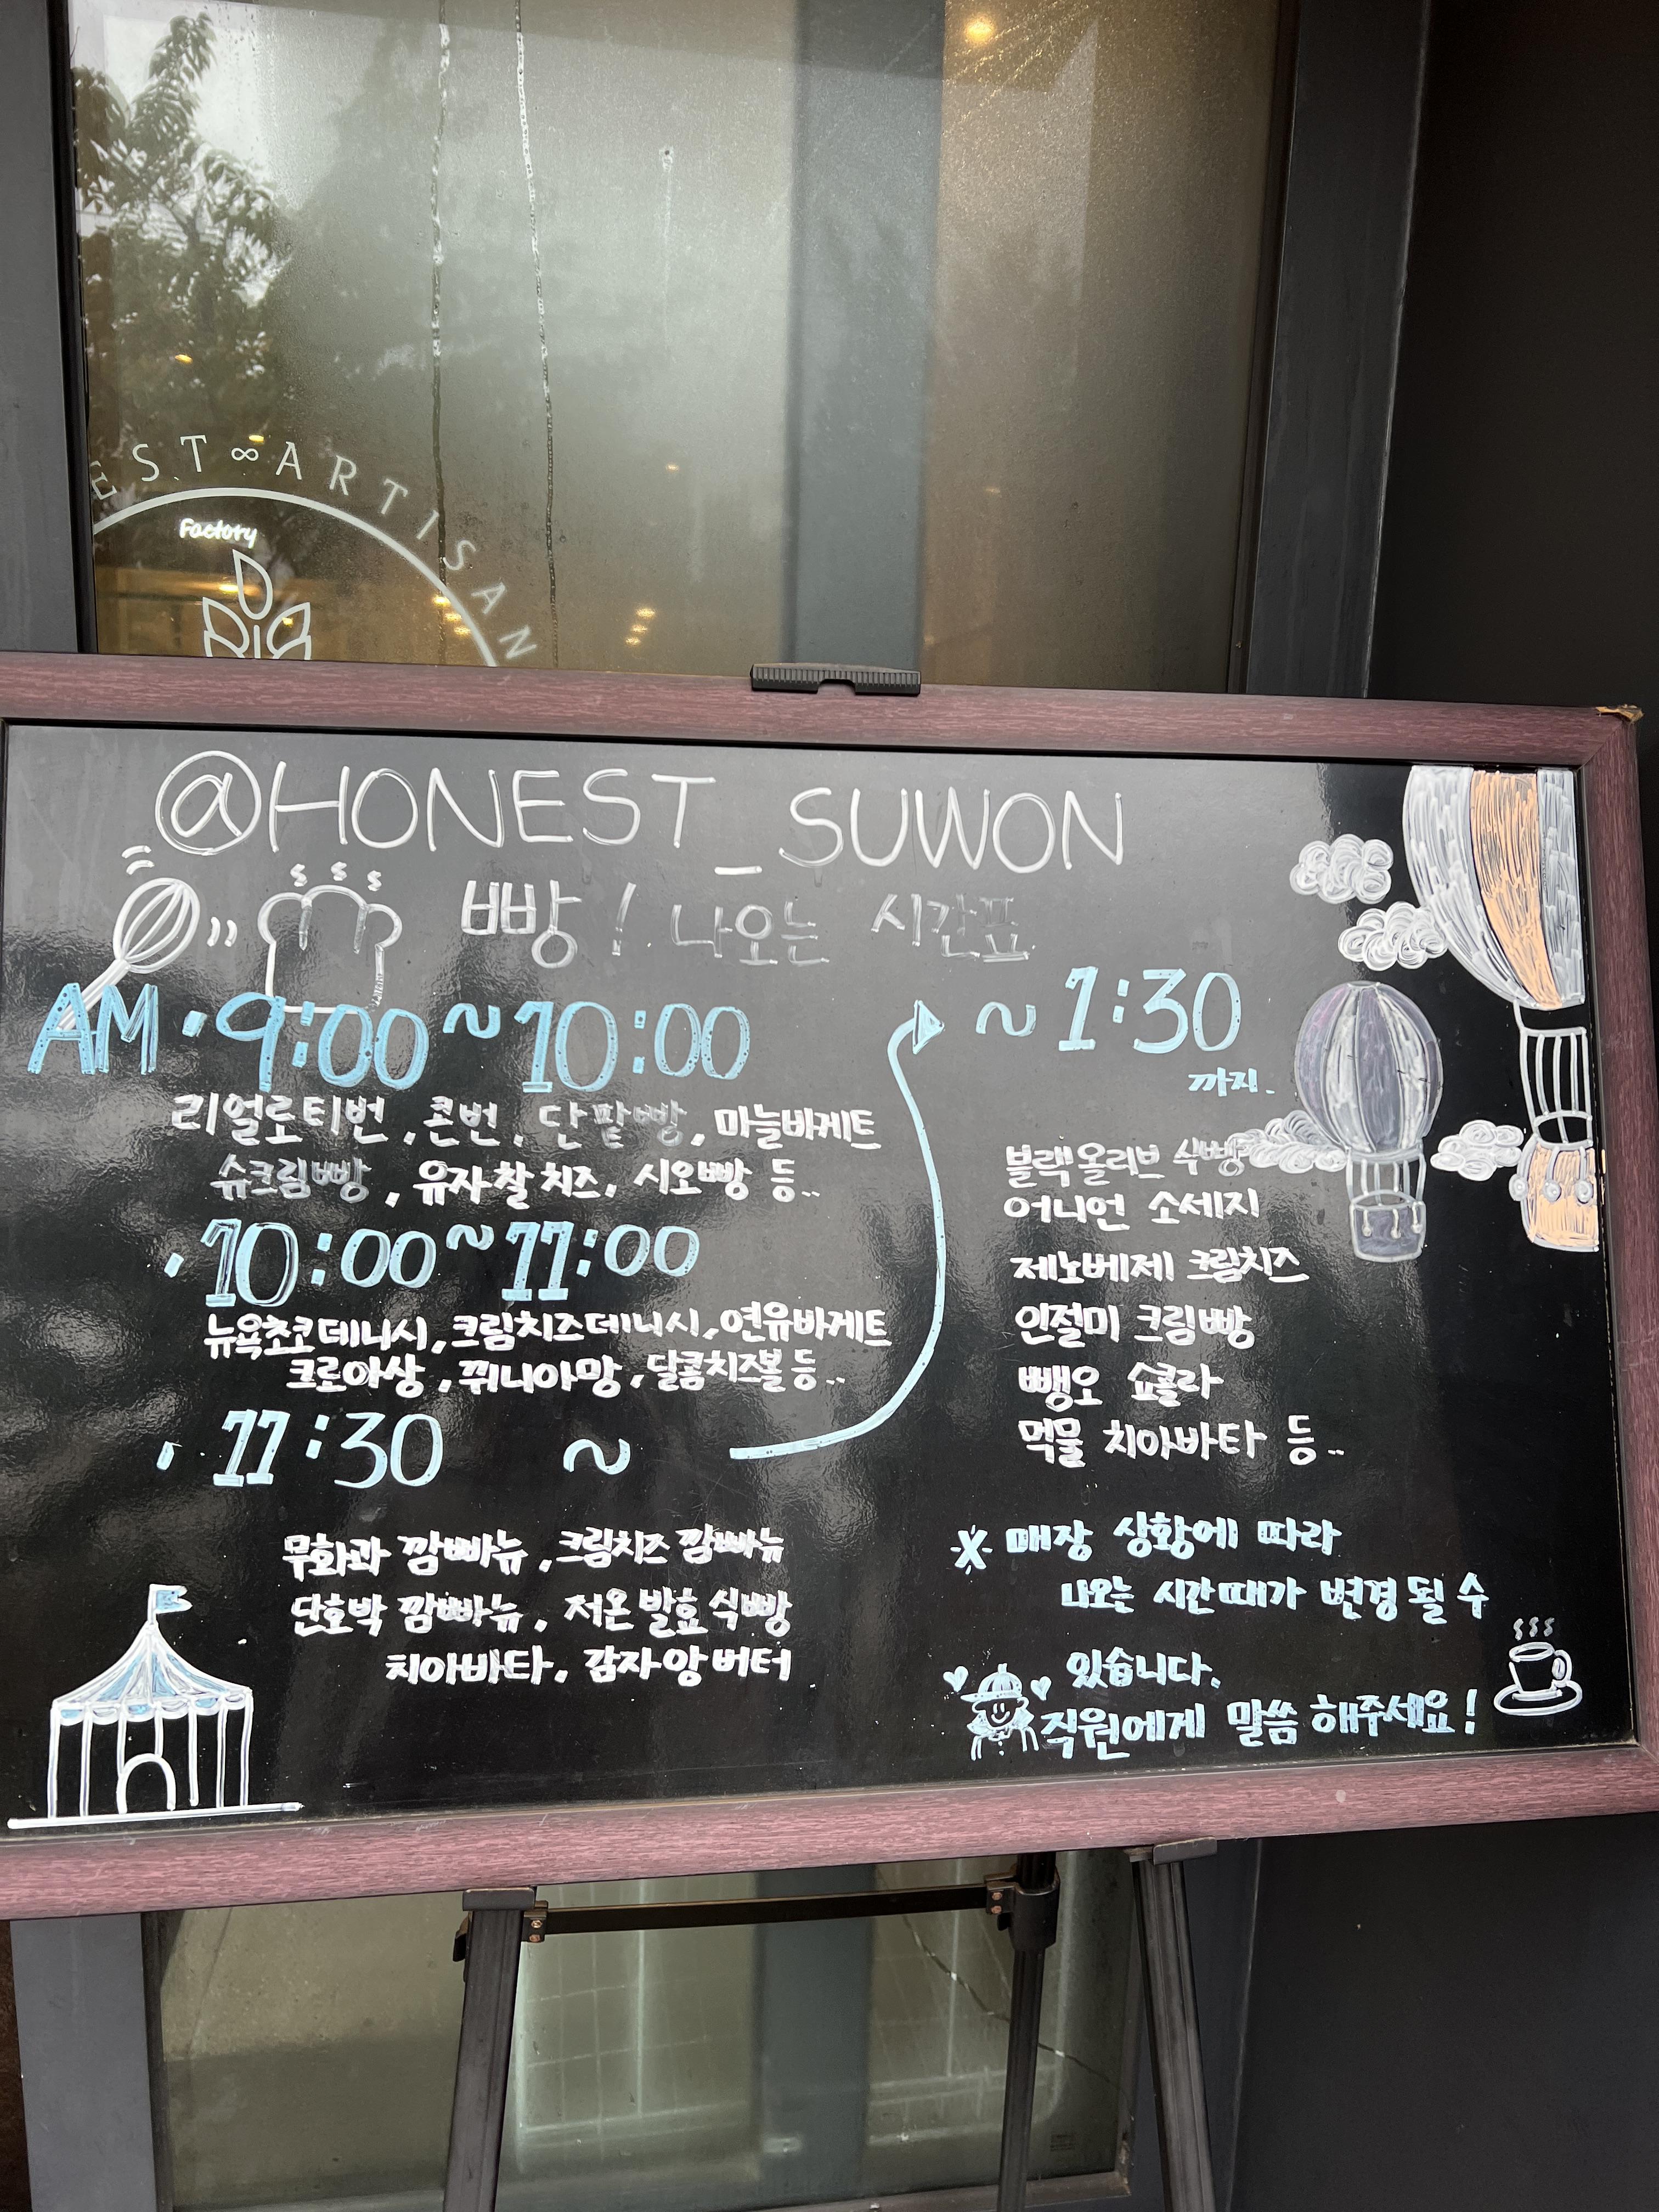 EST∞ARTISAN
Factory
@HONEST_SUWON
빵! 나오는 시간표
AM · 9:00 ~ 10:00
리얼로티번, 콘번, 단팥빵, 마늘바게트
슈크림빵, 유자찰치즈, 시오빵 등..
· 10:00 ~ 11:00
뉴욕초코데니시, 크림치즈데니시, 연유바게트
크로아상, 퀴니아망, 달콤치즈볼 등..
· 11:30 ~
무화과 깜빠뉴, 크림치즈 깜빠뉴
단호박 깜빠뉴, 저온발효식빵
치아바타, 감자앙버터
~ 1:30
까지.
블랙올리브 식빵
어니언 소세지
제노베제 크림치즈
인절미 크림빵
뺑오 쇼콜라
먹물 치아바타 등..
※ 매장 상황에 따라
나오는 시간때가 변경 될 수
있습니다.
직원에게 말씀 해주세요!